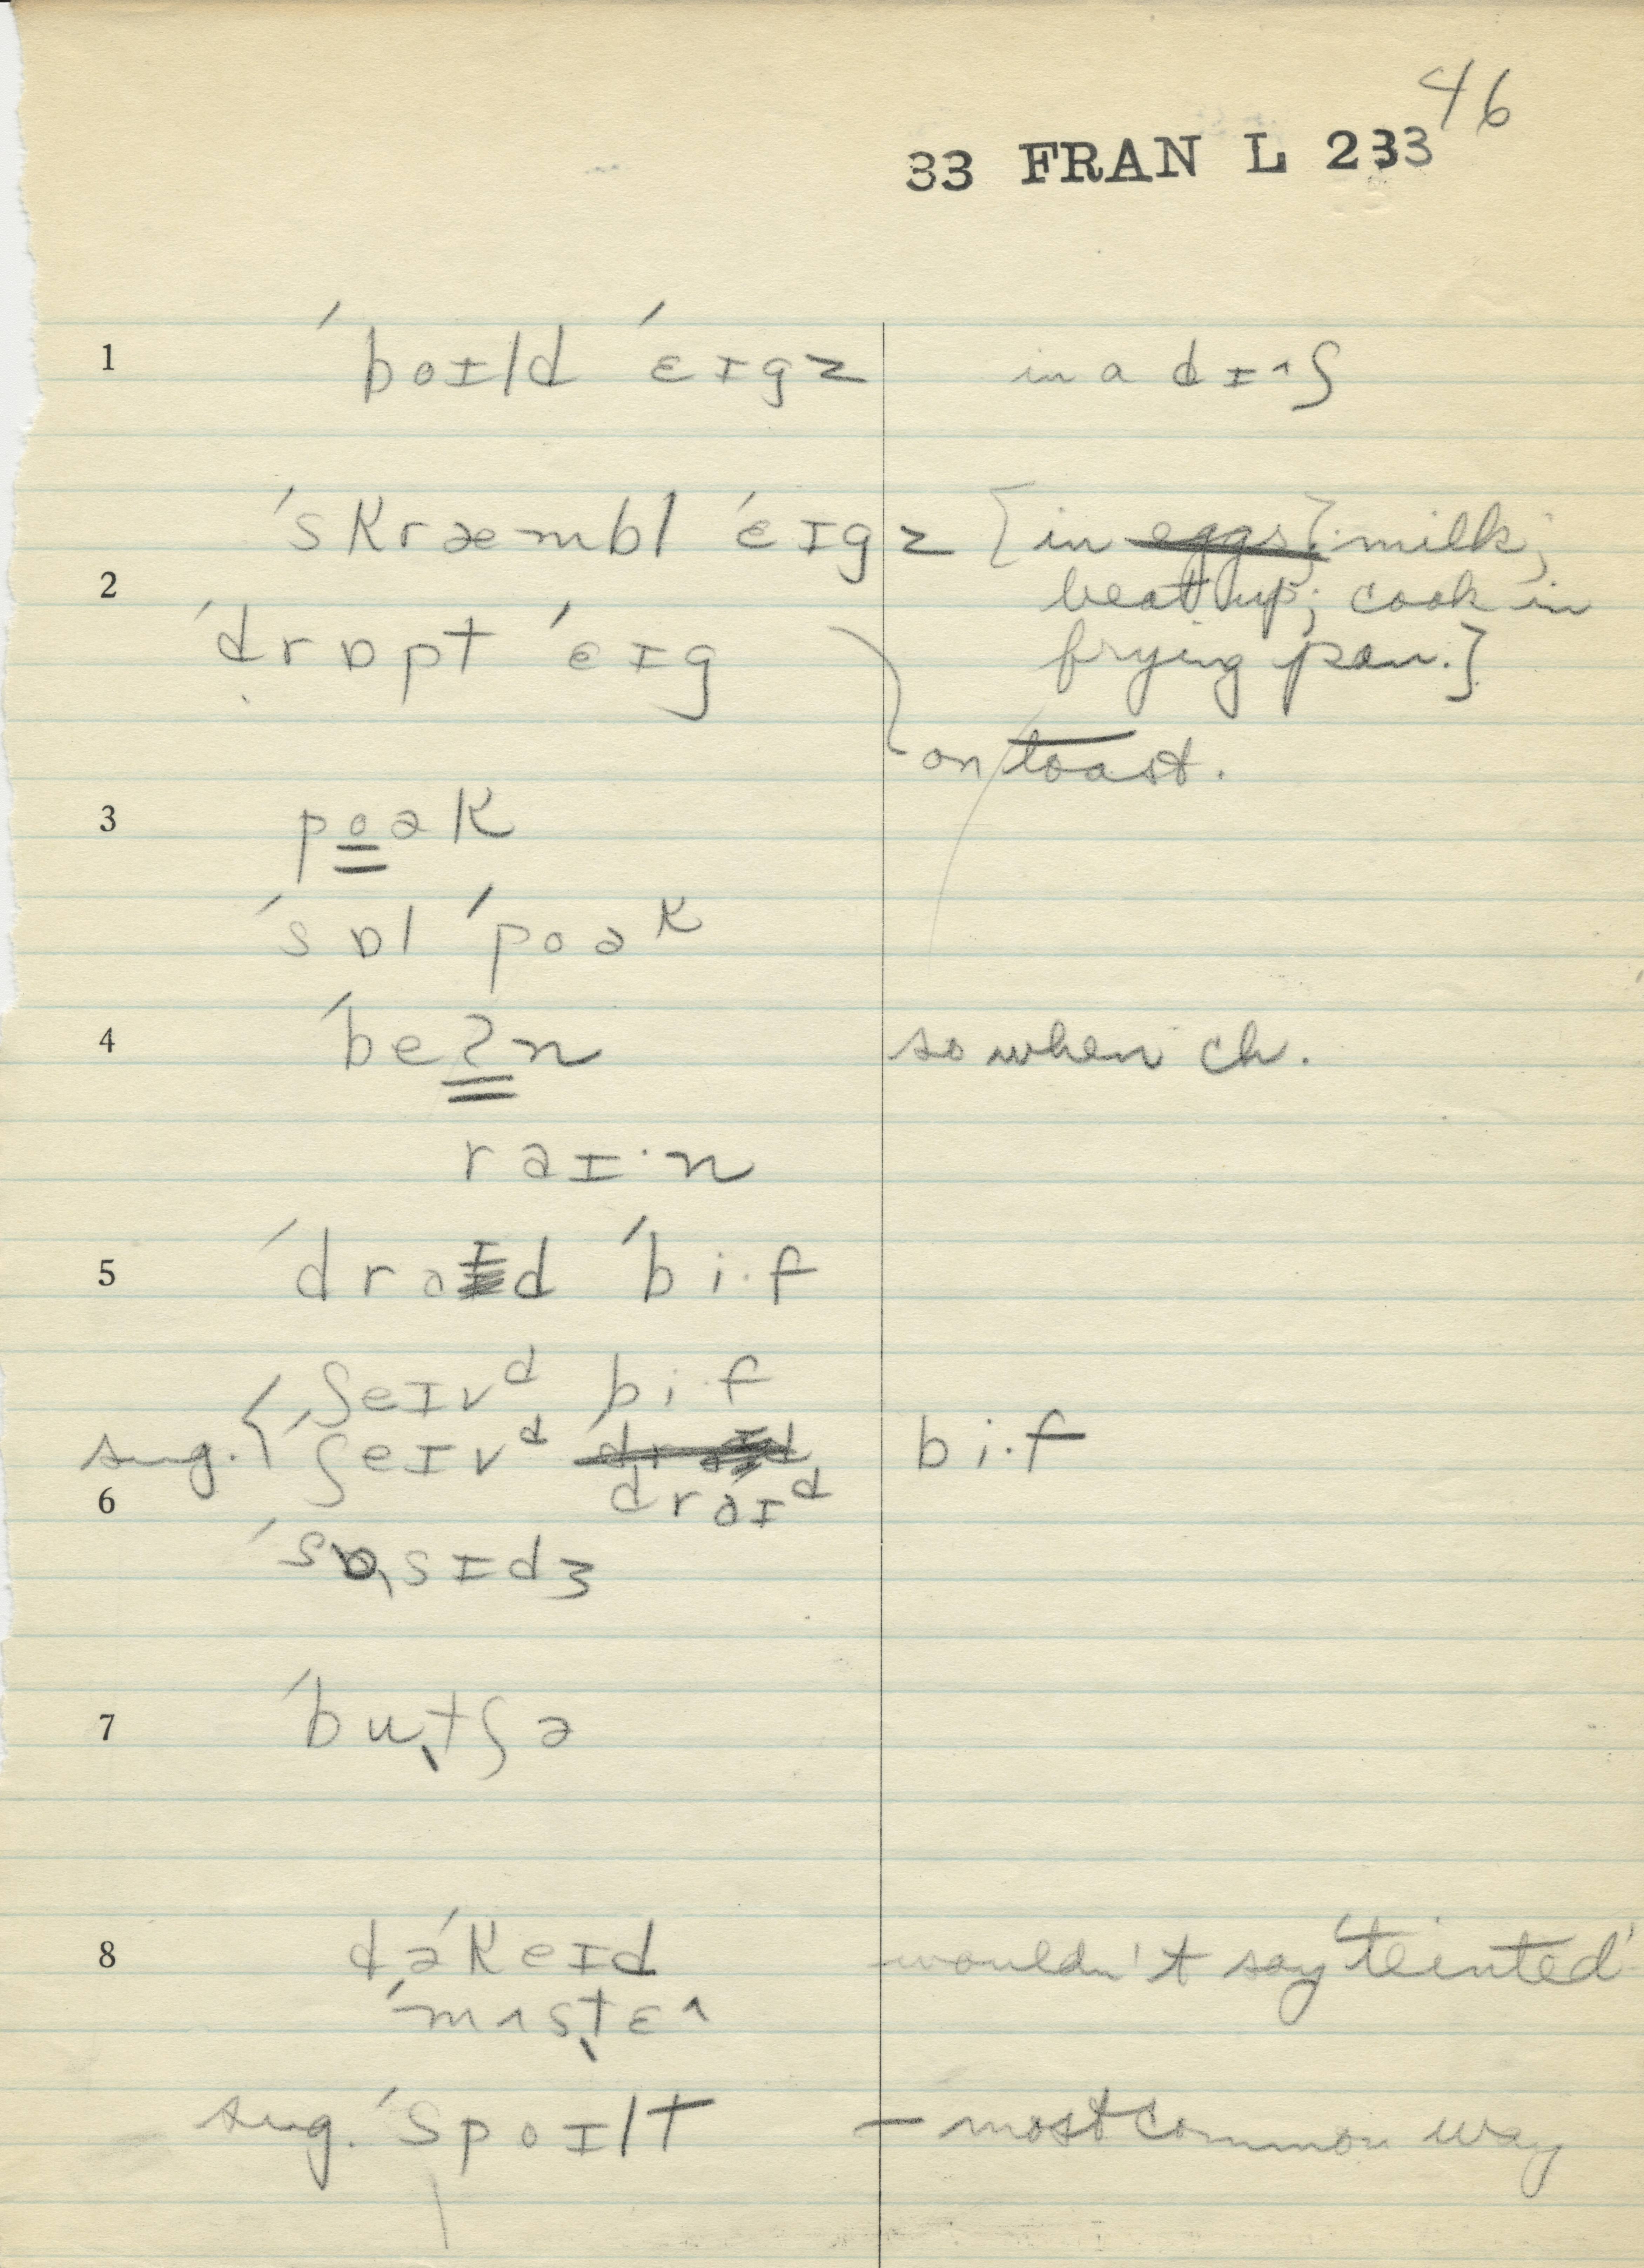 46
33 FRAN L 233
1 ˈboɪld ˈɛɪgz in a dɪ˄ʃ
ˈskræmbl ˈɛɪgz [in eggs]. milk;
2 beat up; cook in
ˈdrɒpt ˈɛɪg frying pan.]
on toast.
3 poək
ˈsɒl ˈpoək
4 ˈbeʔn so when ch.
raɪ·n
5 ˈdraɪd ˈbi·f
ʃeɪvᵈ bi·f
sug. ˈʃeɪvᵈ bi·f
6 draɪᵈ
ˈsɒsɪdʒ
7 ˈbutʃə
8 dəˈkeɪd wouldn't say 'teinted'
ˈmɪstɛ˄
sug. ˈspoɪlt – most common way